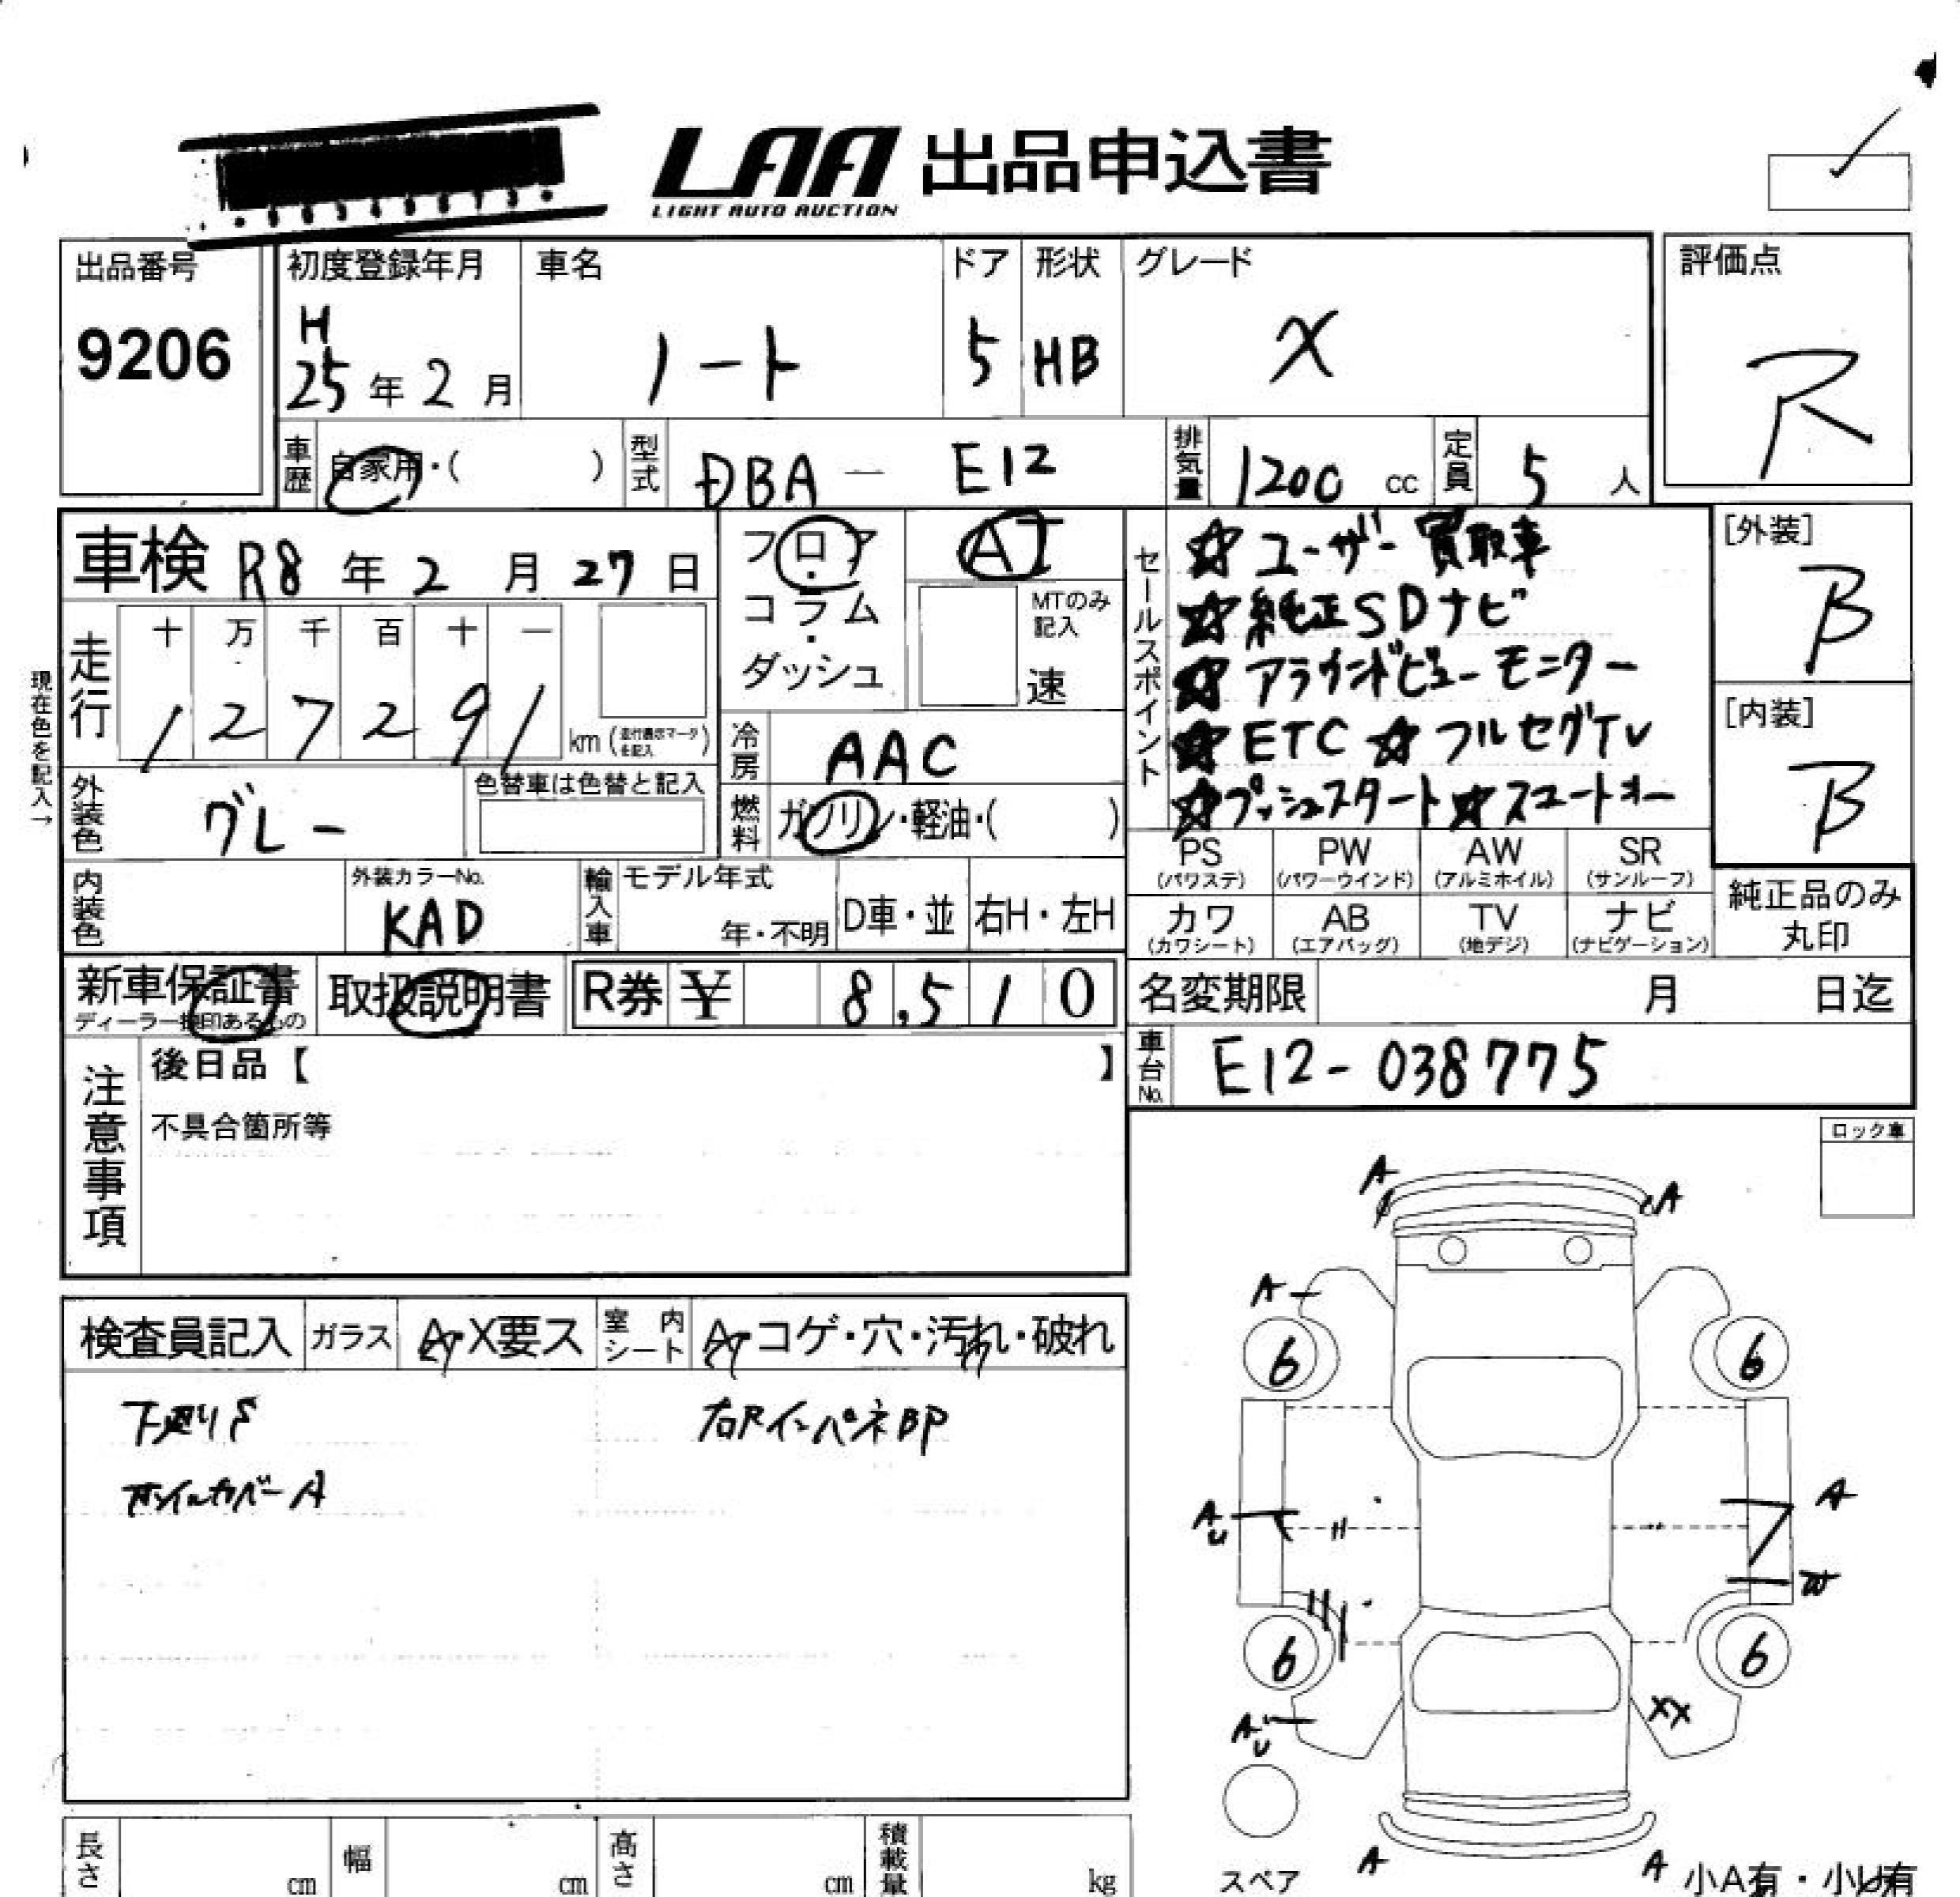 LAA 出品申込書
LIGHT AUTO AUCTION
出品番号
9206
初度登録年月
H
25年2月
車名
ノート
ドア
5
形状
HB
グレード
X
評価点
R
車歴
自家用・( )
型式
DBA - E12
排気量
1200 cc
定員
5 人
車検 R8年2月27日
走行
十 万 千 百 十 一
1 2 7 2 9 1
km (走行表示マークを記入)
現在色を記入→
外装色
グレー
色替車は色替と記入
内装色
外装カラーNo.
KAD
フロア・コラム・ダッシュ
AT
MTのみ記入
速
冷房
AAC
燃料
ガソリン・軽油・( )
輸入車
モデル年式
年・不明
D車・並
右H・左H
セールスポイント
☆ユーザー買取車
☆純正SDナビ
☆アラウンドビューモニター
☆ETC ☆フルセグTV
☆プッシュスタート☆スマートキー
[外装]
B
[内装]
B
PS (パワステ)
PW (パワーウインド)
AW (アルミホイル)
SR (サンルーフ)
カワ (カワシート)
AB (エアバッグ)
TV (地デジ)
ナビ (ナビゲーション)
純正品のみ
丸印
新車保証書
取扱説明書
R券 ¥ 8,510
名変期限 月 日迄
車台No.
E12-038775
注意事項
後日品【 】
不具合箇所等
ロック車
検査員記入
ガラス
A・X要ス
室内シート
A・コゲ・穴・汚れ・破れ
下廻りS
右RインパネBP
ホイルカバーA
A
A
A
6
6
AU
A
W
6
6
AU
XX
スペア
A
A
小A有・小U有
長さ cm
幅 cm
高さ cm
積載量 kg